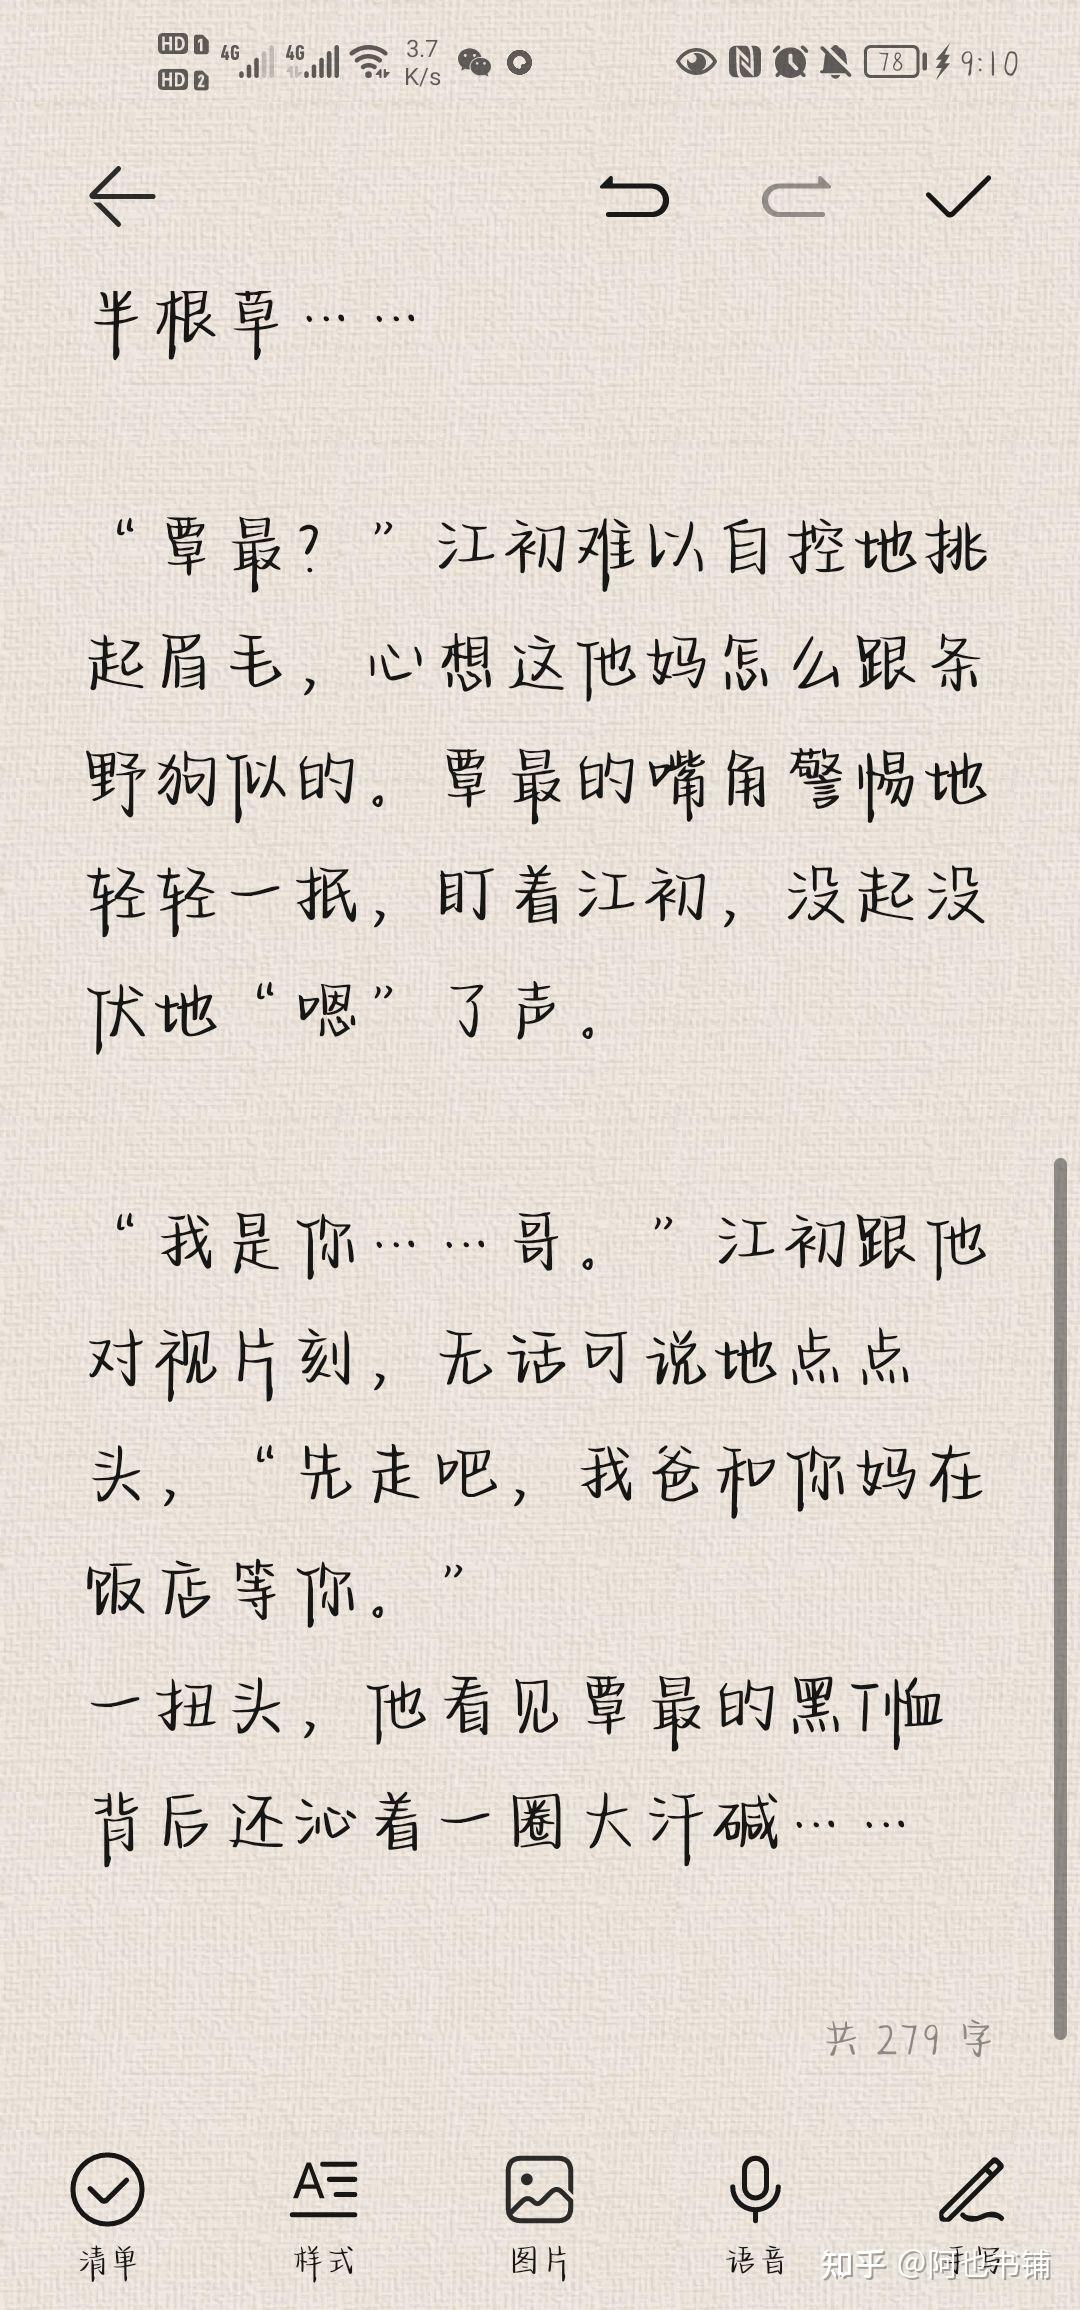 HD 1 4G 4G 3.7 78 9:10
HD 2 K/s
半根草……
“覃最？”江初难以自控地挑
起眉毛，心想这他妈怎么跟条
野狗似的。覃最的嘴角警惕地
轻轻一抿，盯着江初，没起没
伏地“嗯”了声。
“我是你……哥。”江初跟他
对视片刻，无话可说地点点
头，“先走吧，我爸和你妈在
饭店等你。”
一扭头，他看见覃最的黑T恤
背后还沁着一圈大汗碱……
共 279 字
清单 样式 图片 语音 手写
知乎 @阿也书铺